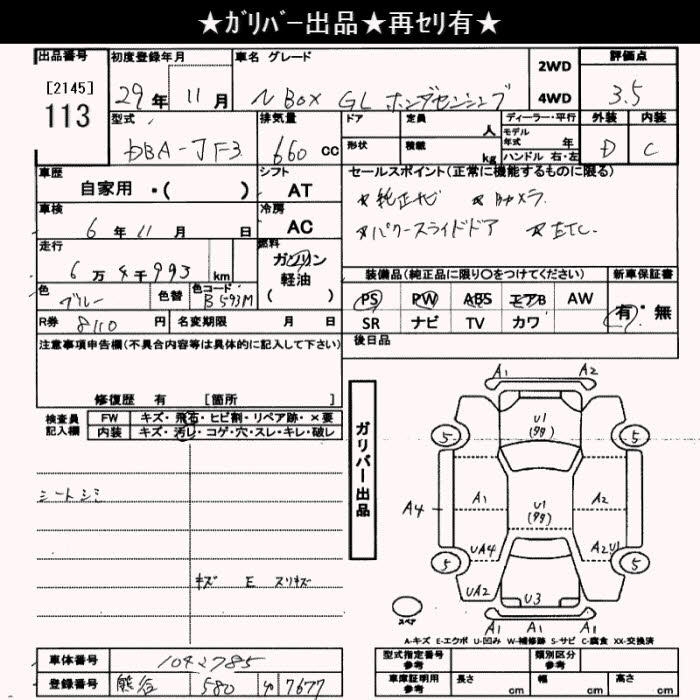 ★ガリバー出品★再セリ有★
出品番号
[2145]
113
初度登録年月
29年 11月
車名 グレード
N BOX GL ホンダセンシング
2WD
4WD
評価点
3.5
型式
DBA-JF3
排気量
660 cc
ドア
定員
人
形状
積載
kg
ディーラー・平行
モデル年式
年
ハンドル 右・左
外装
D
内装
C
車歴
自家用 ・( )
シフト
AT
セールスポイント(正常に機能するものに限る)
★純正ナビ ★Bカメラ
★パワースライドドア ★ETC.
車検
6年 11月 日
冷房
AC
走行
6万 4千 993 km
燃料
ガソリン
軽油
( )
色
ブルー
色替
色コード
B593M
装備品(純正品に限り○をつけてください)
PS PW ABS エアB AW
SR ナビ TV カワ
新車保証書
有・無
R券 8110 円
名変期限 月 日
後日品
注意事項申告欄(不具合内容等は具体的に記入して下さい)
修復歴 有 [箇所 ]
検査員記入欄
FW キズ・飛石・ヒビ割・リペア跡・×要
内装 キズ・汚レ・コゲ・穴・スレ・キレ・破レ
シートシミ
キズ E スリキズ
ガリバー出品
A1 A2
U1
(タタ)
5 5
A4 A1 U1 A2
(タタ)
UA4 A2U1
5 5
UA2 U3
A1 A2
スペア
A-キズ E-エクボ U-凹み W-補修跡 S-サビ C-腐食 XX-交換済
車体番号 1042785
登録番号 熊谷 580 わ 7677
型式指定番号
参考
類別区分
参考
車庫証明用
参考
長さ cm
幅 cm
高さ cm